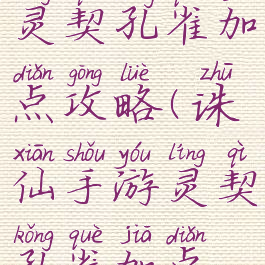 灵契孔雀加
diǎn gōng lüè zhū
点攻略(诛
xiān shǒu yóu líng qì
仙手游灵契
kǒng què jiā diǎn
孔雀加点